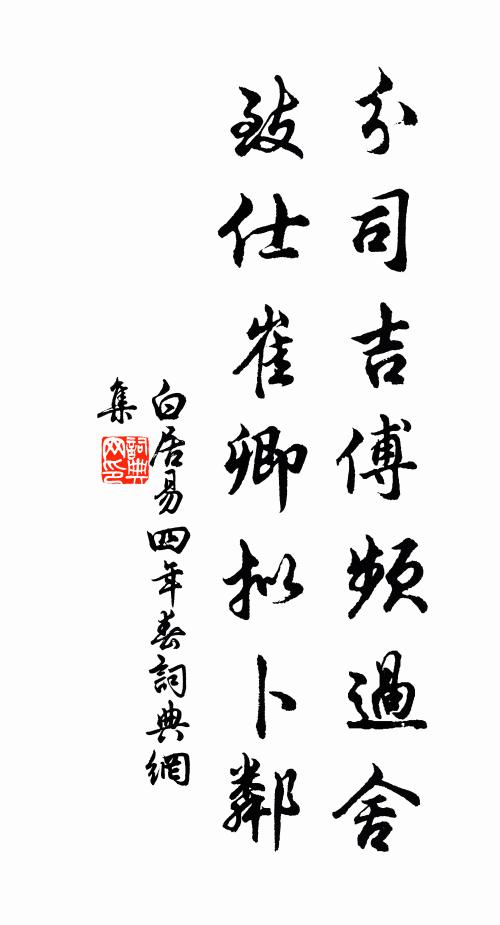 分司吉傅頻過舍
致仕崔卿拟卜鄰
白居易四年春詞典網
集
詞典网印